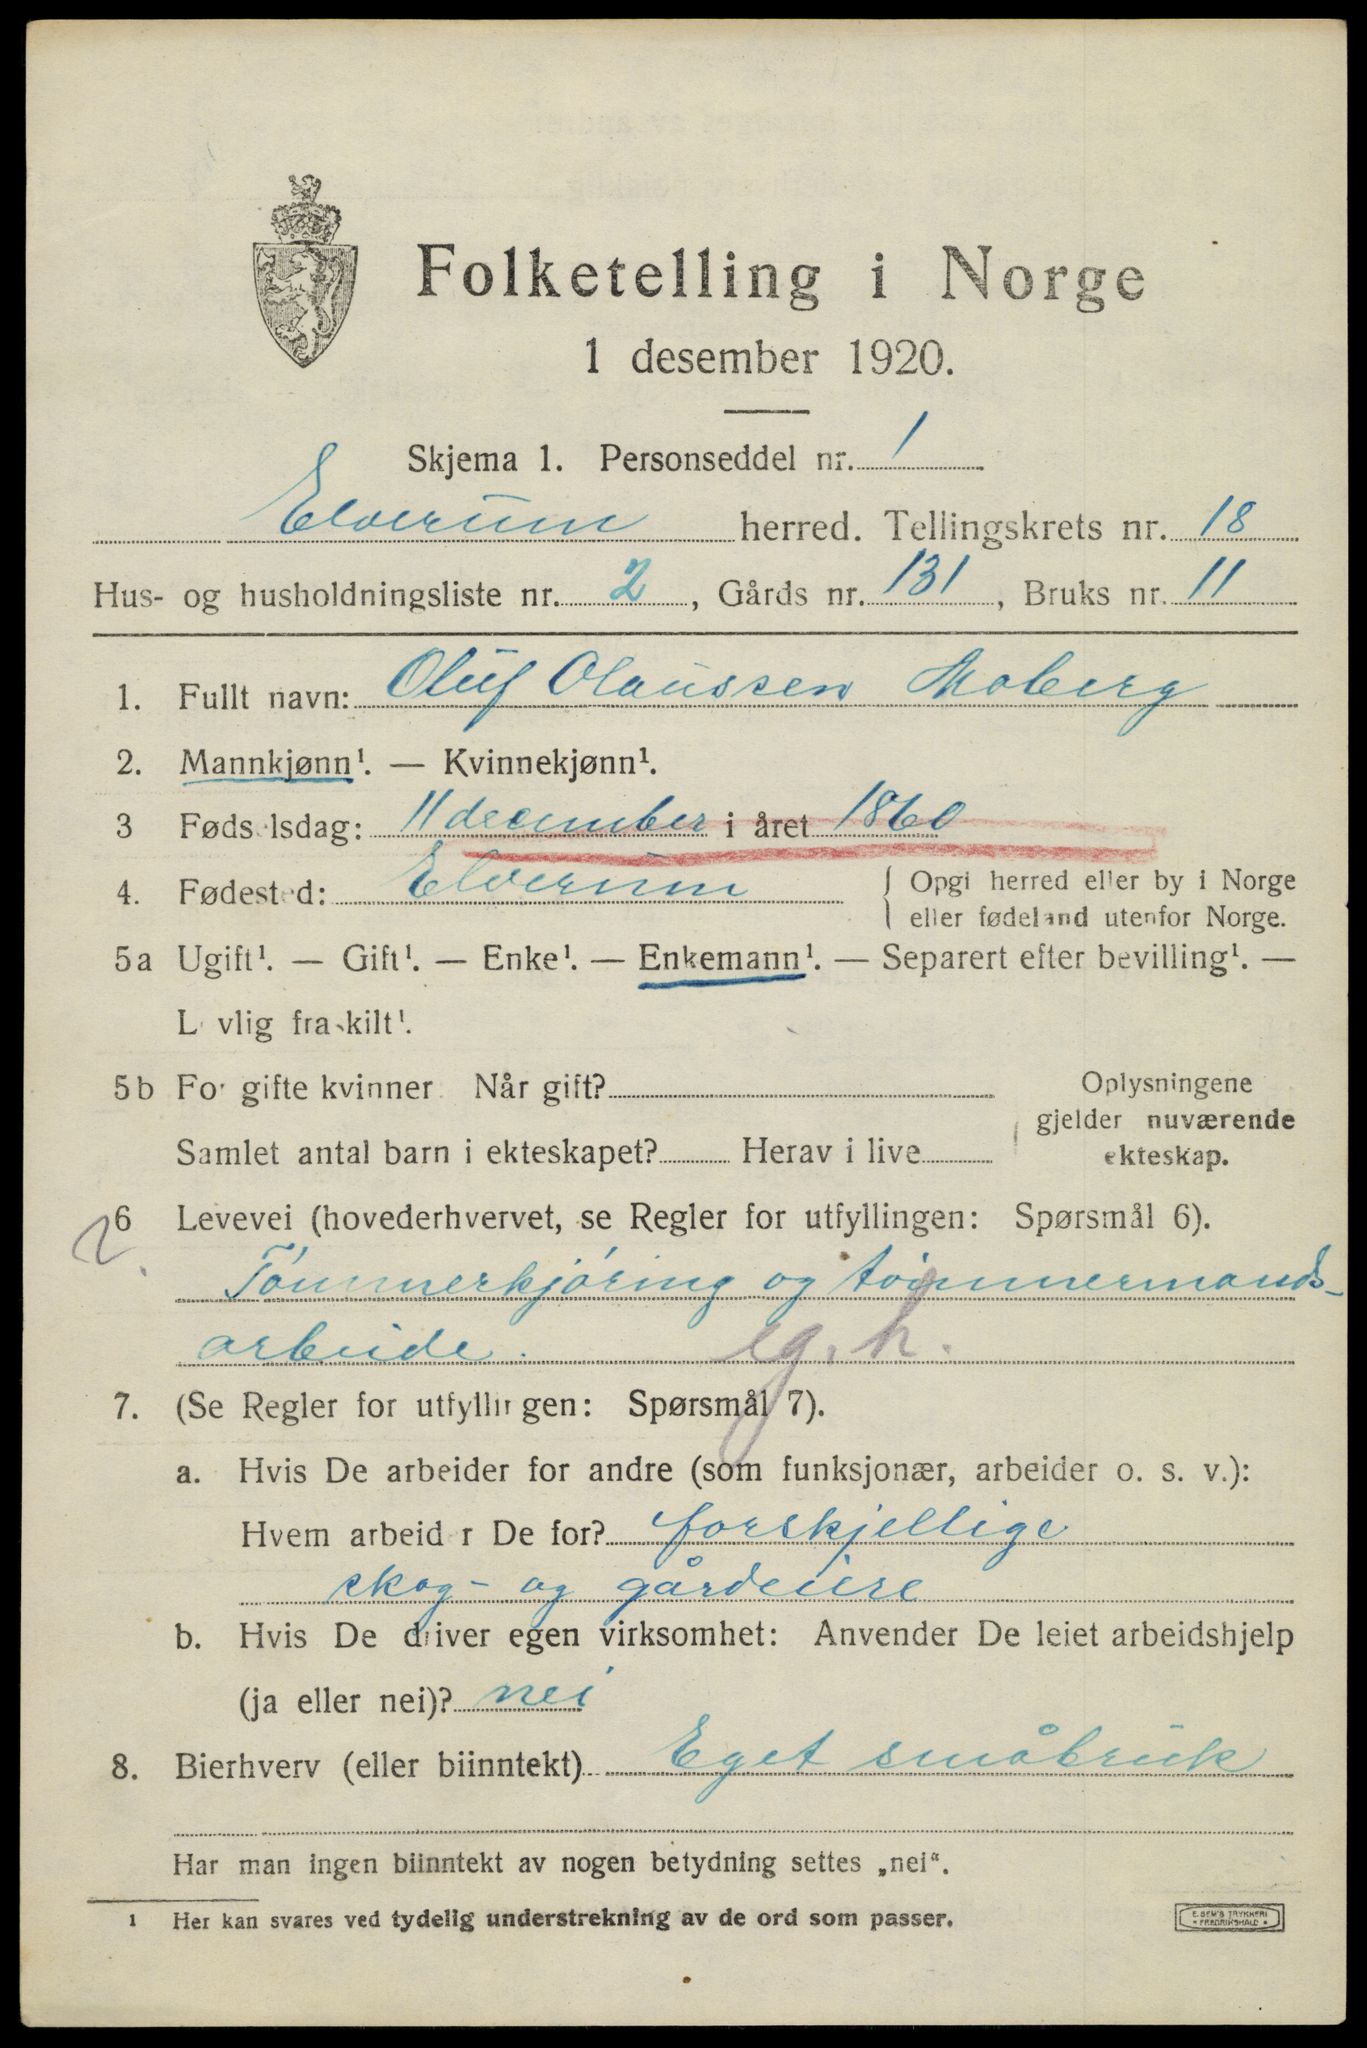 Folketelling i Norge
1 desember 1920.
Skjema 1. Personseddel nr. 1
Elverum herred. Tellingskrets nr. 18
Hus- og husholdningsliste nr. 2, Gårds nr. 131, Bruks nr. 11
1. Fullt navn: Oluf Olaussen Moberg
2. Mannkjønn¹. — Kvinnekjønn¹.
3 Fødselsdag: 11 december i året 1860
4. Fødested: Elverum { Opgi herred eller by i Norge
eller fødeland utenfor Norge.
5a Ugift¹. — Gift¹. — Enke¹. — Enkemann¹. — Separert efter bevilling¹. —
Lovlig fraskilt¹.
5b For gifte kvinner Når gift? Oplysningene
gjelder nuværende
Samlet antal barn i ekteskapet? Herav i live ekteskap.
6 Levevei (hovederhvervet, se Regler for utfyllingen: Spørsmål 6).
2.
Tømmerkjøring og tømmermands-
arbeide. eg. h.
7. (Se Regler for utfyllingen: Spørsmål 7).
a. Hvis De arbeider for andre (som funksjonær, arbeider o. s. v.):
Hvem arbeider De for? forskjellige
skog- og gårdeiere
b. Hvis De driver egen virksomhet: Anvender De leiet arbeidshjelp
(ja eller nei)? nei
8. Bierhverv (eller biinntekt) Eget småbruk
Har man ingen biinntekt av nogen betydning settes „nei“.
¹ Her kan svares ved tydelig understrekning av de ord som passer.
E. SEM'S TRYKKERI
FREDRIKSHALD